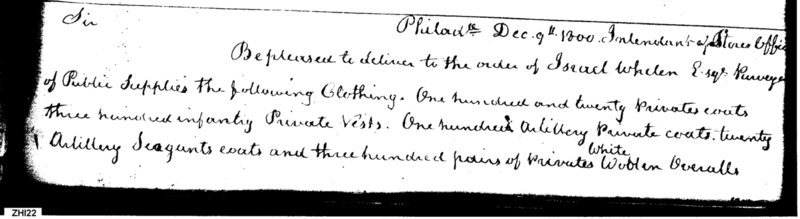 Sir
Philad.ª Dec. 9th 1800. Intendant of Stores Office
Be pleased to deliver to the order of Israel Whelen Esqr. Purveyo
of Public Supplies the following Clothing. One hundred and twenty Privates coats
three hundred infantry Private Vests. One hundred Artillery Private coats. twenty
White
Artillery Seagants coats and three hundred pairs of Privates Woolen Overalls
ZHI22